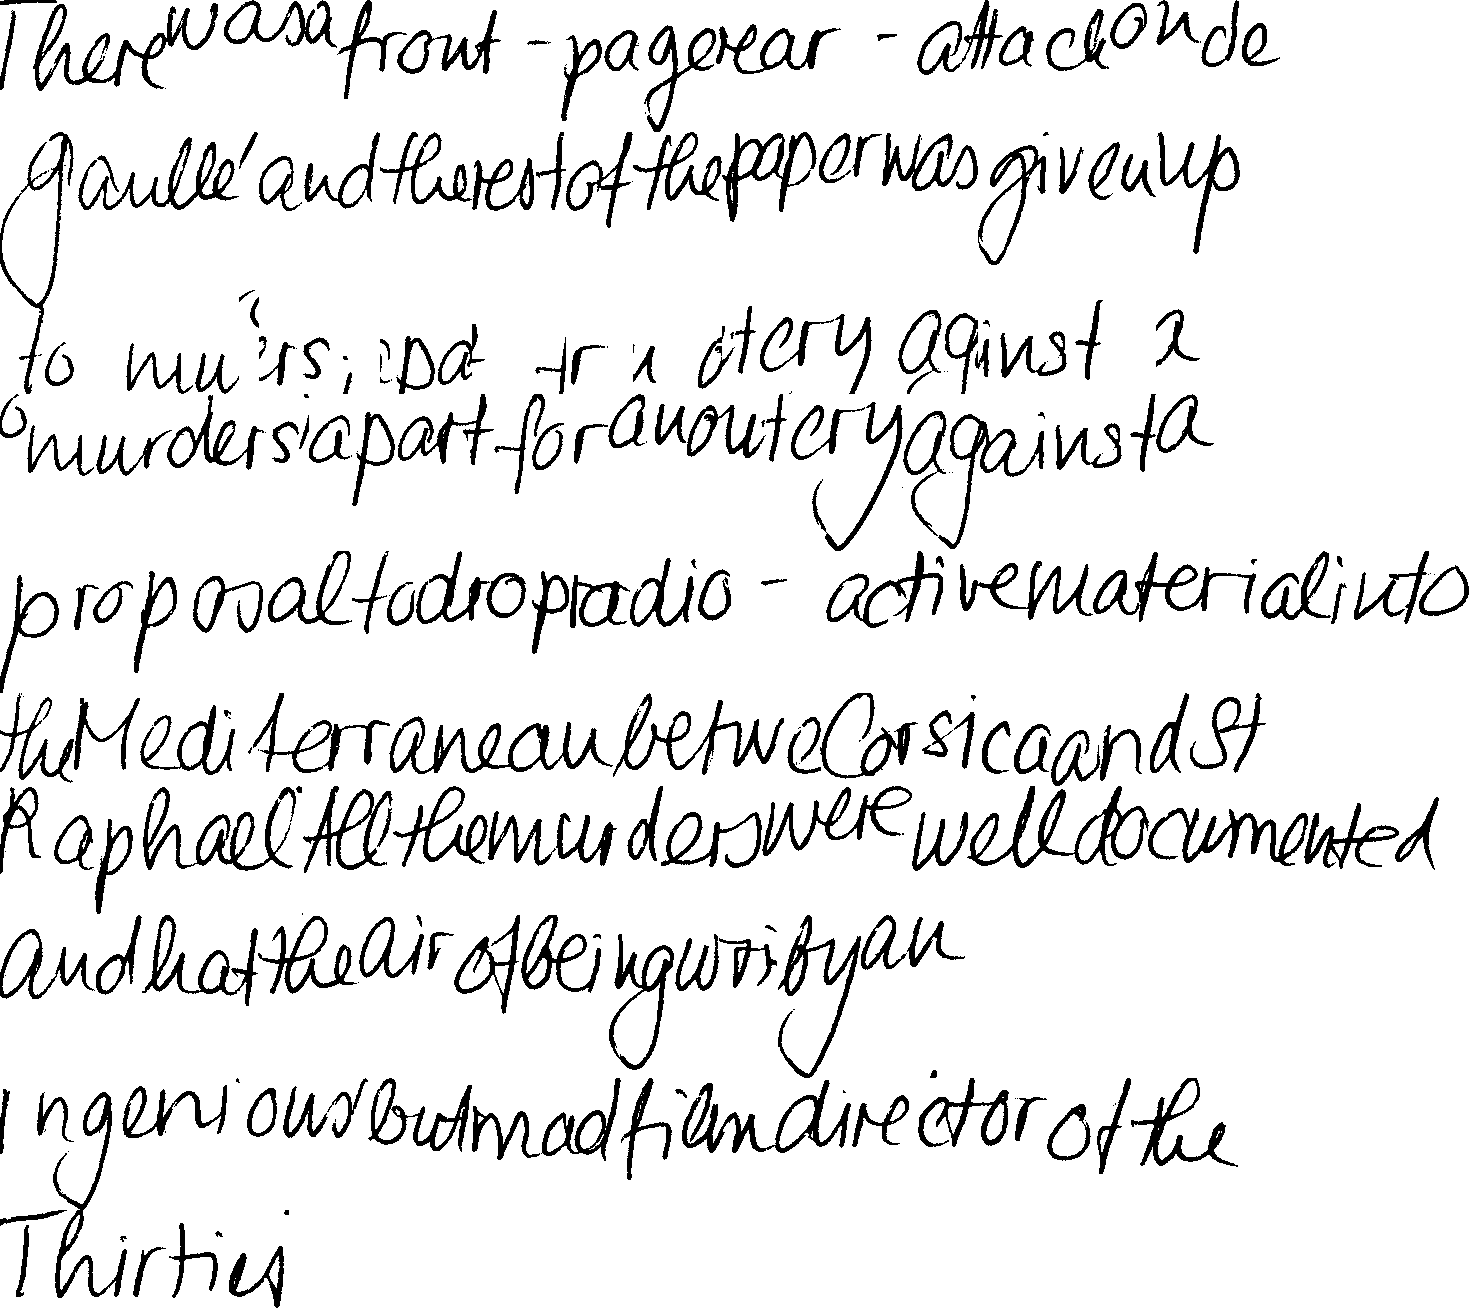 There was a front - page rear - attack on de
gaulle' and the rest of the paper was given up
to against a
murders' apart for an outcry against a
proposal to drop radio - active material into
the Mediterranean betwe Corsica and St
Raphael' All the murders were well documented
and hat the air of being by an
ingenious' but mad film director of the
Thirties